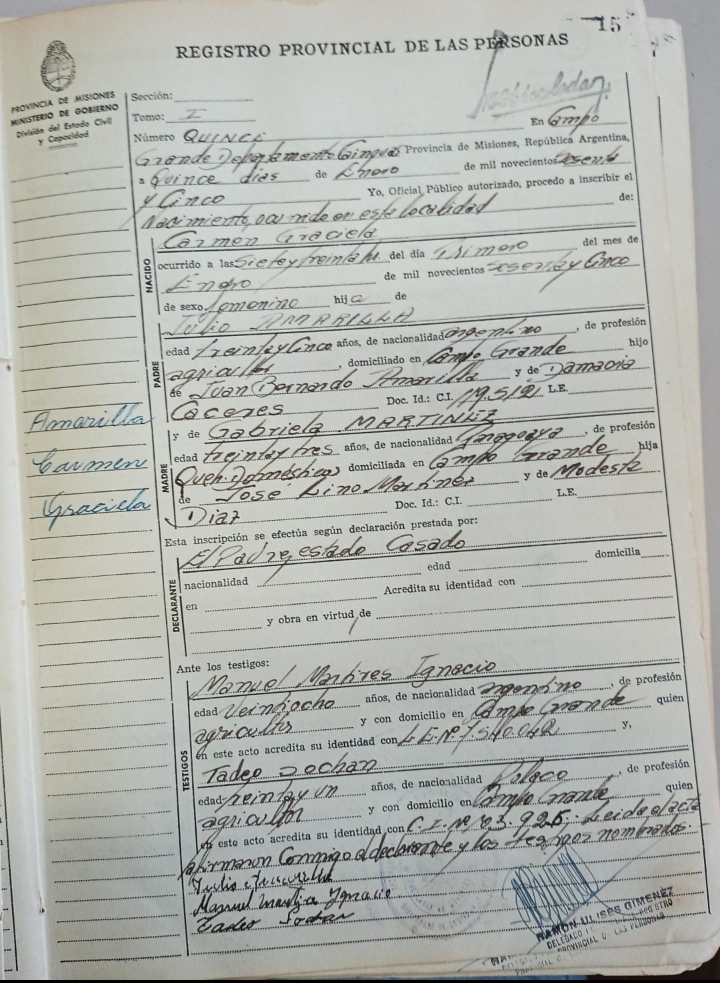 15
REGISTRO PROVINCIAL DE LAS PERSONAS
PROVINCIA DE MISIONES
MINISTERIO DE GOBIERNO
División del Estado Civil
y Capacidad
Sección:
Tomo: I
Número QUINCE En Campo
Grande Departamento Provincia de Misiones, República Argentina,
a Quince dias de Enero de mil novecientos sesenta
y Cinco Yo, Oficial Público autorizado, procedo a inscribir el
Nacimiento, ocurrido en esta localidad de:
NACIDO
Carmen Graciela
ocurrido a las Siete y treinta hs del día Primero del mes de
Enero de mil novecientos sesenta y Cinco
de sexo femenino hija de
PADRE
Julio AMARILLA
edad treinta y Cinco años, de nacionalidad argentino, de profesión
agricultor, domiciliado en Campo Grande hijo
de Juan Bernardo Amarilla y de Damacia
Caceres Doc. Id.: C.I. L.E.
MADRE
y de Gabriela MARTINEZ
edad treinta y tres años, de nacionalidad Paraguaya, de profesión
Queh. Domésticos domiciliada en Campo Grande hija
de José Lino Martinez y de Modesta
Diaz Doc. Id.: C.I. L.E.
Amarilla
Carmen
Graciela
Esta inscripción se efectúa según declaración prestada por:
DECLARANTE
El Padre, estado Casado
nacionalidad edad domicilia
en Acredita su identidad con
y obra en virtud de
Ante los testigos:
TESTIGOS
Manuel Martires Ignacio
edad Veintiocho años, de nacionalidad argentino, de profesión
agricultor y con domicilio en Campo Grande quien
en este acto acredita su identidad con L.E.Nº 7.540.042 y,
Tadeo Sochan
edad treinta y un años, de nacionalidad Polaco, de profesión
agricultor y con domicilio en Campo Grande quien
en este acto acredita su identidad con C.I.Nº 93.926.- Leida el acta
firmaron Conmigo el declarante y los testigos nominados.-
Julio Amarilla
Manuel Martires Ignacio
Tadeo Sochan
RAMON ULISES GIMENEZ
DELEGADO REGISTRO
PROVINCIAL DE LAS PERSONAS